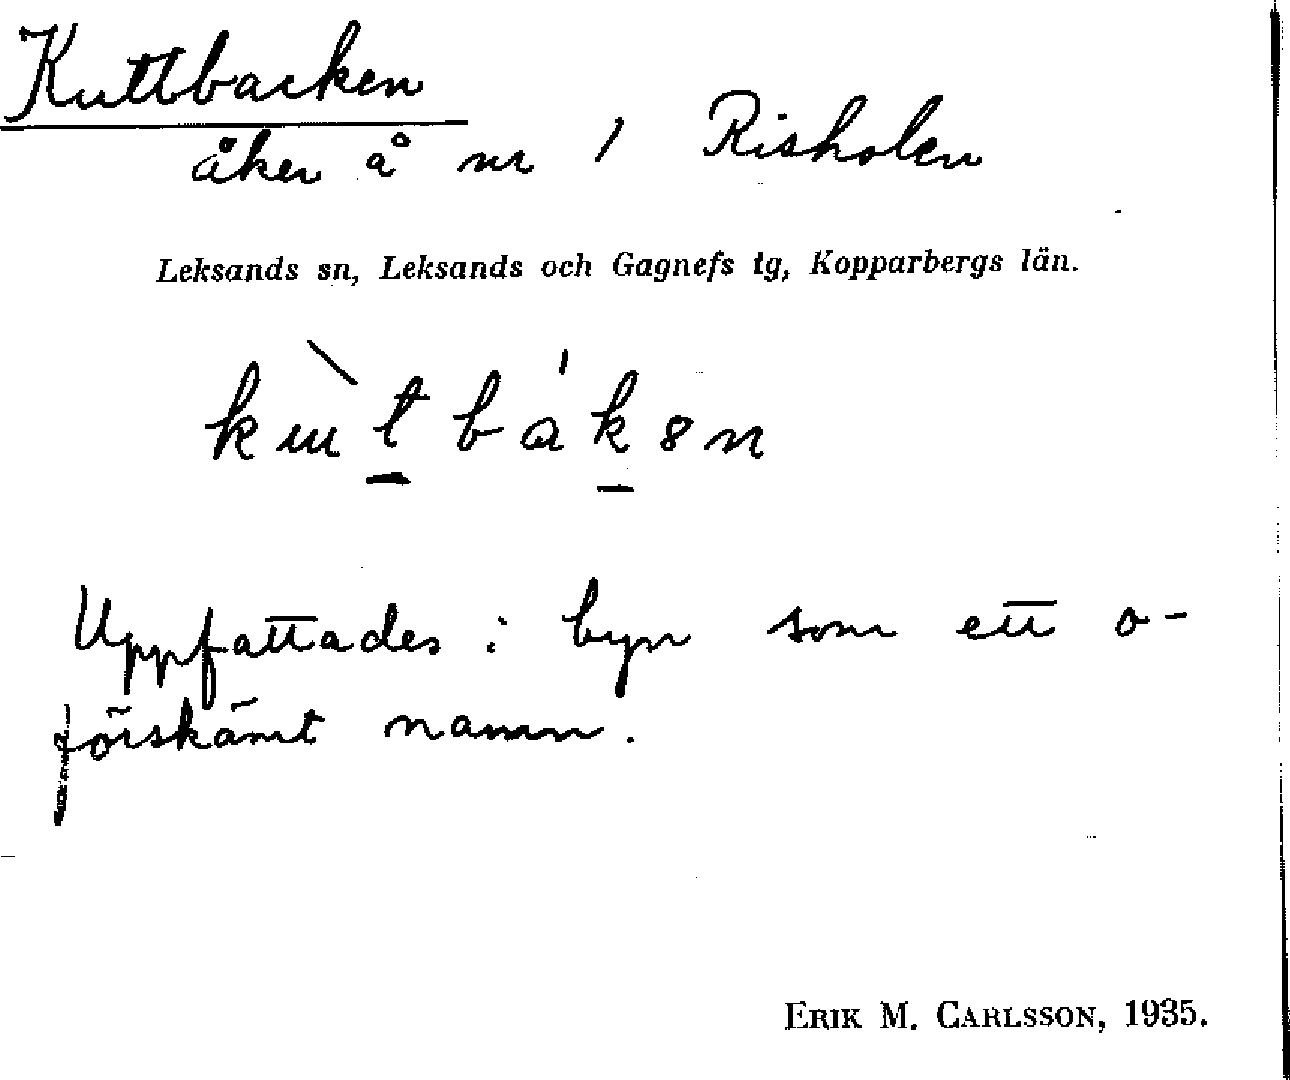 Kuttbacken
åker å nr 1 Risholen
Leksands sn, Leksands och Gagnefs tg, Kopparbergs län.
Uppfattades i byn som ett o-
förskämt namn.
ERIK M. CARLSSON, 1935.